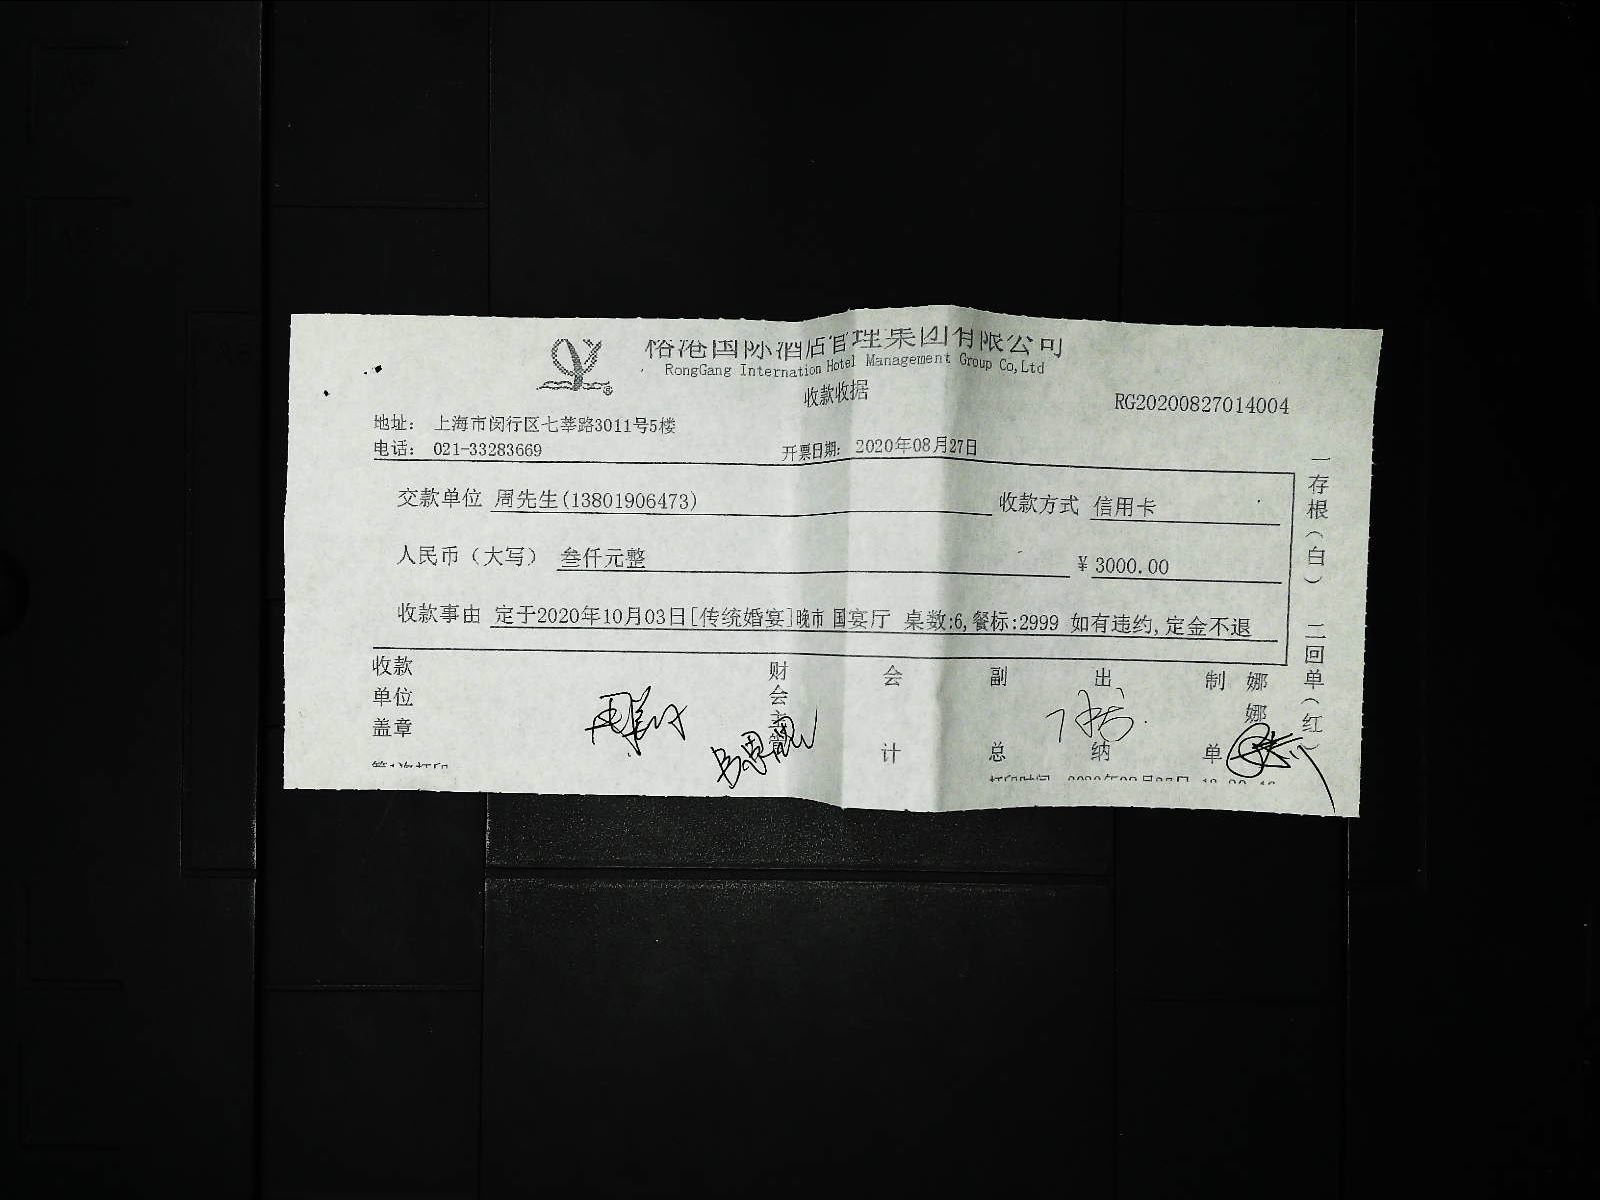 裕港国际酒店管理集团有限公司
RongGang Internation Hotel Management Group Co,Ltd
收款收据
RG20200827014004
地址： 上海市闵行区七莘路3011号5楼
电话： 021-33283669
开票日期： 2020年08月27日
交款单位 周先生(13801906473)
收款方式 信用卡
人民币（大写） 叁仟元整
¥ 3000.00
收款事由 定于2020年10月03日[传统婚宴]晚市 国宴厅 桌数:6,餐标:2999 如有违约,定金不退
收款单位盖章
财会主管
会计
副总
出纳
制单
娜娜
一存根（白）
二回单（红）